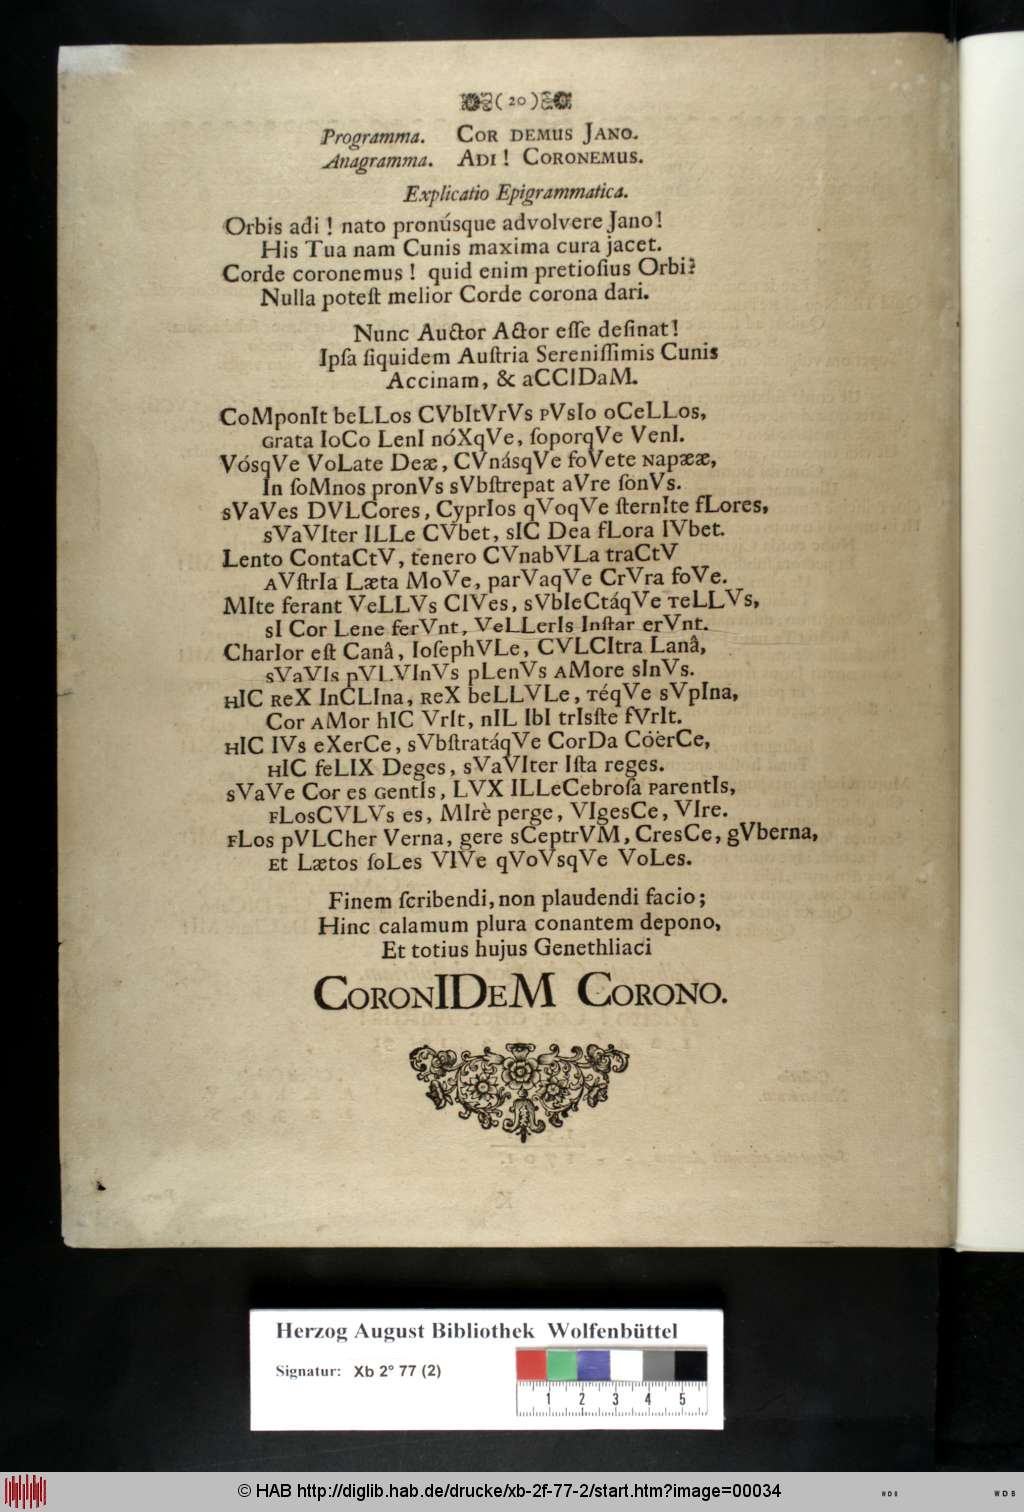 (20)
Programma. COR DEMUS JANO.
Anagramma. ADI! CORONEMUS.
Explicatio Epigrammatica.
Orbis adi! nato pronúsque advolvere Jano!
His Tua nam Cunis maxima cura jacet.
Corde coronemus! quid enim pretioſius Orbi?
Nulla poteſt melior Corde corona dari.
Nunc Auctor Actor eſſe deſinat!
Ipſa ſiquidem Auſtria Sereniſſimis Cunis
Accinam, & aCCIDaM.
CoMponIt beLLos CVbItVrVs PVsIo oCeLLos,
Grata IoCo LenI nóXqVe, ſoporqVe VenI.
VósqVe VoLate Deæ, CVnásqVe foVete Napææ,
In ſoMnos pronVs sVbſtrepat aVre ſonVs.
sVaVes DVLCores, CyprIos qVoqVe ſternIte fLores,
sVaVIter ILLe CVbet, sIC Dea fLora IVbet.
Lento ContaCtV, tenero CVnabVLa traCtV
AVſtrIa Læta MoVe, parVaqVe CrVra foVe.
MIte ferant VeLLVs CIVes, sVbIeCtáqVe TeLLVs,
sI Cor Lene ferVnt, VeLLerIs Inſtar erVnt.
CharIor eſt Canâ, IoſephVLe, CVLCItra Lanâ,
sVaVIs pVLVInVs pLenVs AMore sInVs.
HIC ReX InCLIna, ReX beLLVLe, TéqVe sVpIna,
Cor AMor hIC VrIt, nIL IbI trIsſte fVrIt.
HIC IVs eXerCe, sVbſtratáqVe CorDa CoërCe,
HIC feLIX Deges, sVaVIter Iſta reges.
sVaVe Cor es GentIs, LVX ILLeCebroſa ParentIs,
FLosCVLVs es, MIrè perge, VIgesCe, VIre.
FLos pVLCher Verna, gere sCeptrVM, CresCe, gVberna,
Et Lætos ſoLes VIVe qVoVsqVe VoLes.
Finem ſcribendi, non plaudendi facio;
Hinc calamum plura conantem depono,
Et totius hujus Genethliaci
CORONIDEM CORONO.
Herzog August Bibliothek Wolfenbüttel
Signatur: Xb 2° 77 (2)
1 2 3 4 5
© HAB http://diglib.hab.de/drucke/xb-2f-77-2/start.htm?image=00034